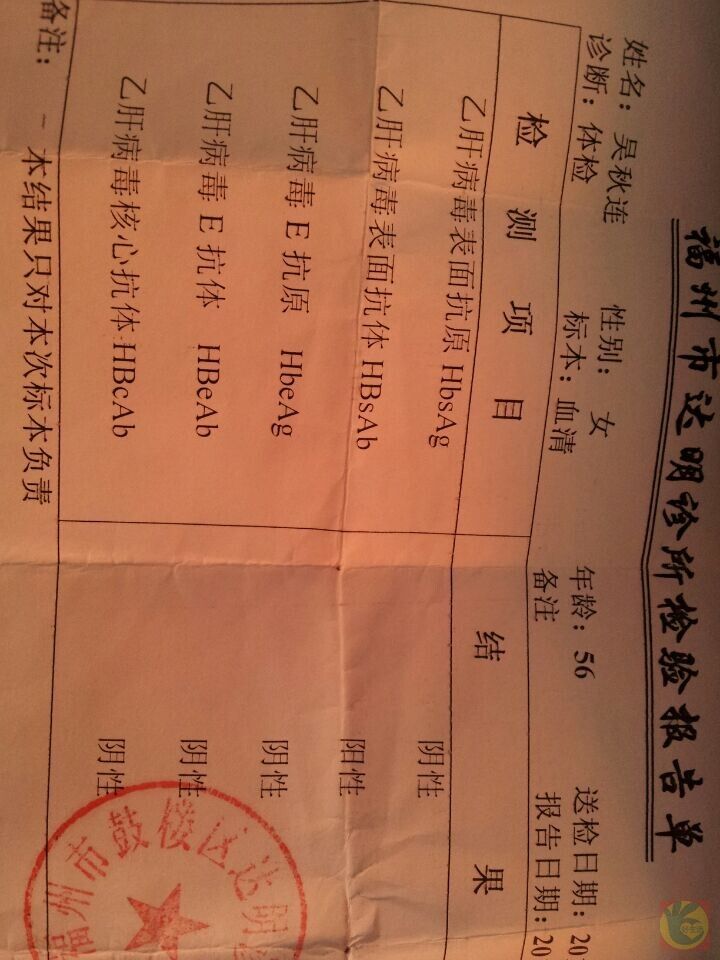 福州市达明诊所检验报告单
姓名：吴秋连 性别：女 年龄：56 送检日期：20
诊断：体检 标本：血清 备注 报告日期：20
检测项目 结果
乙肝病毒表面抗原 HbsAg 阴性
乙肝病毒表面抗体 HBsAb 阳性
乙肝病毒 E 抗原 HbeAg 阴性
乙肝病毒 E 抗体 HBeAb 阴性
乙肝病毒核心抗体 HBcAb 阴性
备注： - 本结果只对本次标本负责
福州市鼓楼区达明